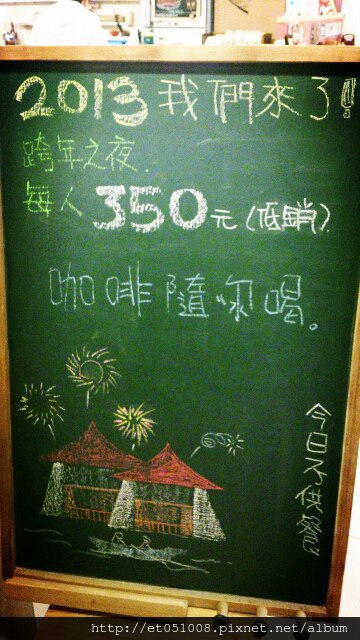 2013我們來了!!
跨年之夜.
每人350元(低銷)
咖啡隨你喝。
今日不供餐
http://et051008.pixnet.net/album